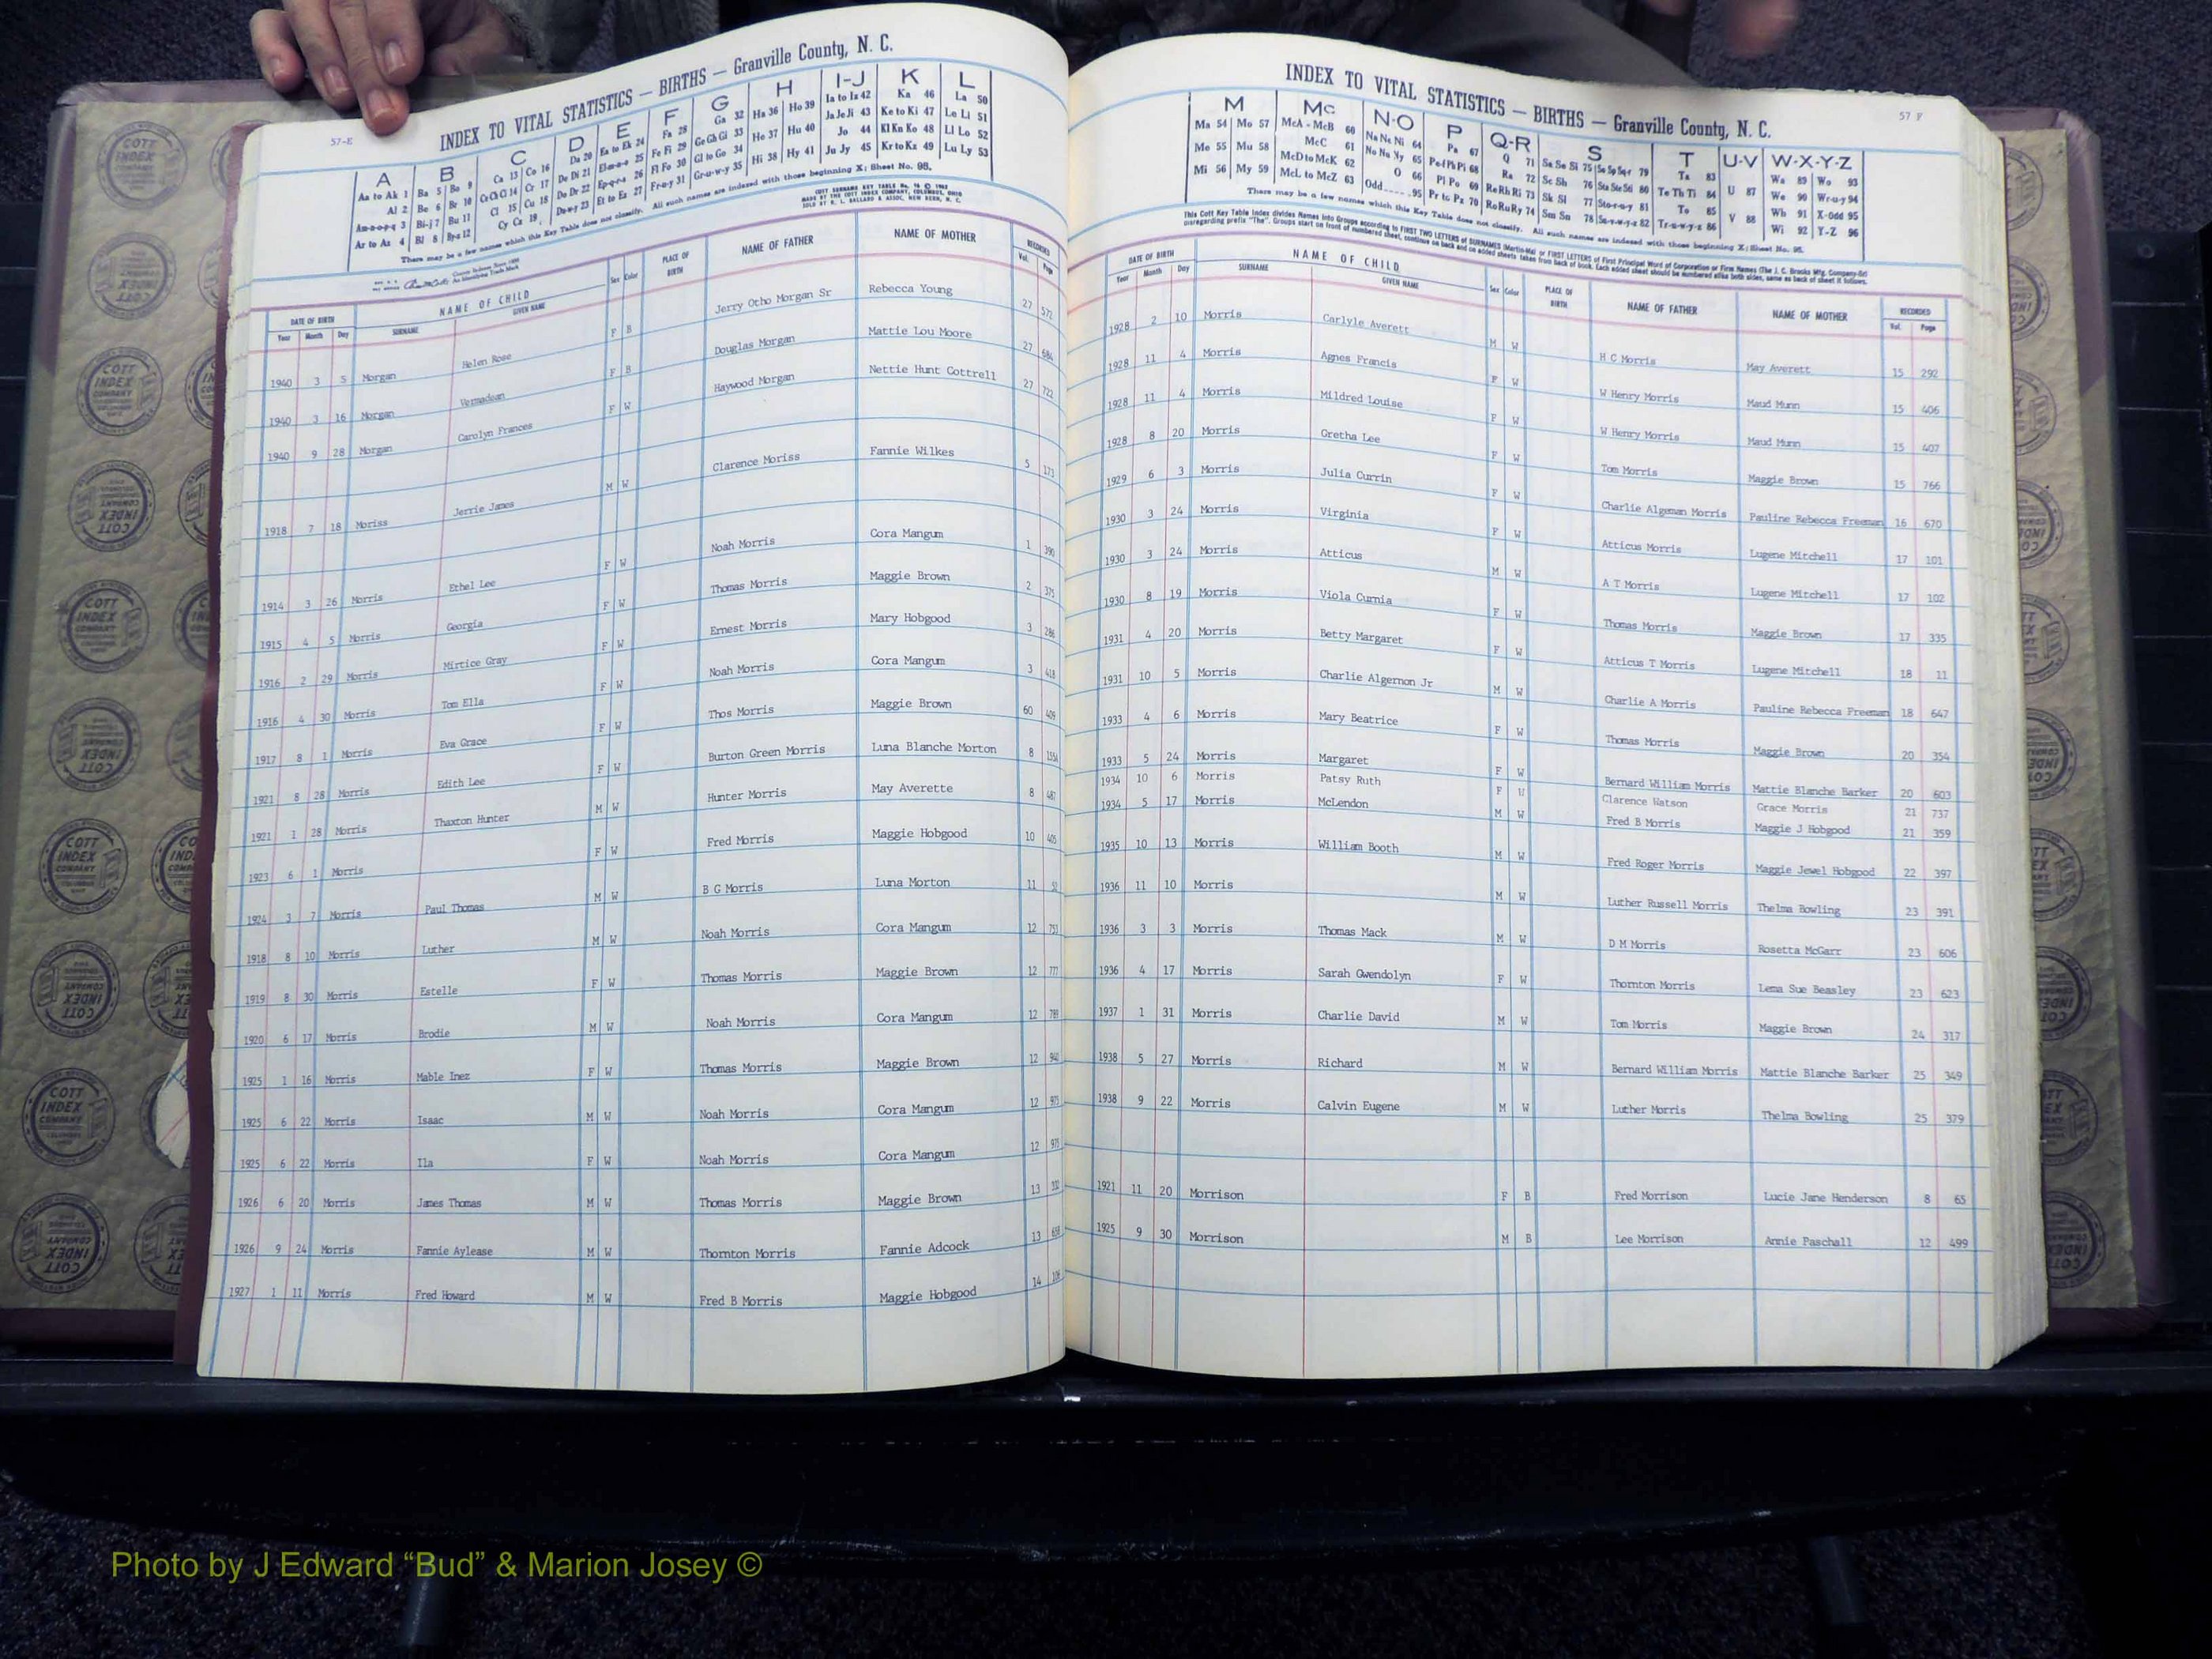 57-E
INDEX TO VITAL STATISTICS — BIRTHS — Granville County, N. C.
A B C D E F G H I-J K L
Aa to Ak 1 Ba 5 Bo 9 Ca 13 Co 16 Da 20 Ea to Ek 24 Fa 28 Ga 32 Ha 36 Ho 39 Ia to Iz 42 Ka 46 La 50
Al 2 Be 6 Br 10 Ce Ch Ci 14 Cr 17 De Di 21 El-m-n-o 25 Fe Fi 29 Ge Gh Gi 33 He 37 Hu 40 Ja Je Ji 43 Ke to Ki 47 Le Li 51
Am-n-o-p-q 3 Bi-j 7 Bu 11 Cl 15 Cu 18 Do Dr 22 Ep-q-r-s 26 Fl Fo 30 Gl to Go 34 Hi 38 Hy 41 Jo 44 Kl Kn Ko 48 Ll Lo 52
Ar to Az 4 Bl 8 By-z 12 Cy Cz 19 Du-w-y 23 Et to Ez 27 Fr-u-y 31 Gr-u-w-y 35 Ju Jy 45 Kr to Kz 49 Lu Ly 53
There may be a few names which this Key Table does not classify. All such names are indexed with those beginning X; Sheet No. 95.
DATE OF BIRTH NAME OF CHILD Sex Color PLACE OF BIRTH NAME OF FATHER NAME OF MOTHER RECORDED
Year Month Day SURNAME GIVEN NAME Vol. Page
1940 3 5 Morgan Helen Rose F B Jerry Otho Morgan Sr Rebecca Young 27 572
1940 3 16 Morgan Vermadean F B Douglas Morgan Mattie Lou Moore 27 684
1940 9 28 Morgan Carolyn Frances F W Haywood Morgan Nettie Hunt Cottrell 27 722
1918 7 18 Moriss Jerrie James M W Clarence Moriss Fannie Wilkes 5 173
1914 3 26 Morris Ethel Lee F W Noah Morris Cora Mangum 1 390
1915 4 5 Morris Georgia F W Thomas Morris Maggie Brown 2 375
1916 2 29 Morris Mirtice Gray F W Ernest Morris Mary Hobgood 3 286
1916 4 30 Morris Tom Ella F W Noah Morris Cora Mangum 3 418
1917 8 1 Morris Eva Grace F W Thos Morris Maggie Brown 60 409
1921 8 28 Morris Edith Lee F W Burton Green Morris Luna Blanche Morton 8 155A
1921 1 28 Morris Thaxton Hunter M W Hunter Morris May Averette 8 487
1923 6 1 Morris F W Fred Morris Maggie Hobgood 10 405
1924 3 7 Morris Paul Thomas M W B G Morris Luna Morton 11
1918 8 10 Morris Luther M W Noah Morris Cora Mangum 12 751
1919 8 30 Morris Estelle F W Thomas Morris Maggie Brown 12 777
1920 6 17 Morris Brodie M W Noah Morris Cora Mangum 12 789
1925 1 16 Morris Mable Inez F W Thomas Morris Maggie Brown 12
1925 6 22 Morris Isaac M W Noah Morris Cora Mangum 12
1925 6 22 Morris Ila F W Noah Morris Cora Mangum 12 975
1926 6 20 Morris James Thomas M W Thomas Morris Maggie Brown 13
1926 9 24 Morris Fannie Aylease M W Thornton Morris Fannie Adcock 13
1927 1 11 Morris Fred Howard M W Fred B Morris Maggie Hobgood 14
57 F
INDEX TO VITAL STATISTICS — BIRTHS — Granville County, N. C.
M Mc N-O P Q-R S T U-V W-X-Y-Z
Ma 54 Mo 57 McA - McB 60 Na Ne Ni 64 Pa 67 Q 71 Sa Se Si 75 So Sp Sq-r 79 Ta 83 U 87 Wa 89 Wo 93
Me 55 Mu 58 McC 61 No Nu Ny 65 Pe-f Ph Pi 68 Ra 72 Sc Sh 76 Sta Ste Sti 80 Te Th Ti 84 V 88 We 90 Wr-u-y 94
Mi 56 My 59 McD to McK 62 O 66 Pl Po 69 Re Rh Ri 73 Sk Sl 77 Sto-r-u-y 81 To 85 Wh 91 X-Odd 95
McL to McZ 63 Odd 95 Pr to Pz 70 Ro Ru Ry 74 Sm Sn 78 Su-v-w-y-z 82 Tr-u-w-y-z 86 Wi 92 Y-Z 96
There may be a few names which this Key Table does not classify. All such names are indexed with those beginning X; Sheet No. 95.
This Cott Key Table Index divides Names into Groups according to FIRST TWO LETTERS of SURNAMES (Martin-Ma) or FIRST LETTERS of First Principal Word of Corporation or Firm Names (The J. C. Brooks Mfg. Company-Br)
disregarding prefix "The". Groups start on front of numbered sheet, continue on back and on added sheets taken from back of book. Each added sheet should be numbered alike both sides, same as back of sheet it follows.
DATE OF BIRTH NAME OF CHILD Sex Color PLACE OF BIRTH NAME OF FATHER NAME OF MOTHER RECORDED
Year Month Day SURNAME GIVEN NAME Vol. Page
1928 2 10 Morris Carlyle Averett M W H C Morris May Averett 15 292
1928 11 4 Morris Agnes Francis F W W Henry Morris Maud Munn 15 406
1928 11 4 Morris Mildred Louise F W W Henry Morris Maud Munn 15 407
1928 8 20 Morris Gretha Lee F W Tom Morris Maggie Brown 15 766
1929 6 3 Morris Julia Currin F W Charlie Algeman Morris Pauline Rebecca Freeman 16 670
1930 3 24 Morris Virginia F W Atticus Morris Lugene Mitchell 17 101
1930 3 24 Morris Atticus M W A T Morris Lugene Mitchell 17 102
1930 8 19 Morris Viola Curnia F W Thomas Morris Maggie Brown 17 335
1931 4 20 Morris Betty Margaret F W Atticus T Morris Lugene Mitchell 18 11
1931 10 5 Morris Charlie Algernon Jr M W Charlie A Morris Pauline Rebecca Freeman 18 647
1933 4 6 Morris Mary Beatrice F W Thomas Morris Maggie Brown 20 354
1933 5 24 Morris Margaret F W Bernard William Morris Mattie Blanche Barker 20 603
1934 10 6 Morris Patsy Ruth F W Clarence Watson Grace Morris 21 737
1934 5 17 Morris McLendon M W Fred B Morris Maggie J Hobgood 21 359
1935 10 13 Morris William Booth M W Fred Roger Morris Maggie Jewel Hobgood 22 397
1936 11 10 Morris M W Luther Russell Morris Thelma Bowling 23 391
1936 3 3 Morris Thomas Mack M W D M Morris Rosetta McGarr 23 606
1936 4 17 Morris Sarah Gwendolyn F W Thornton Morris Lema Sue Beasley 23 623
1937 1 31 Morris Charlie David M W Tom Morris Maggie Brown 24 317
1938 5 27 Morris Richard M W Bernard William Morris Mattie Blanche Barker 25 349
1938 9 22 Morris Calvin Eugene M W Luther Morris Thelma Bowling 25 379
1921 11 20 Morrison F B Fred Morrison Lucie Jane Henderson 8 65
1925 9 30 Morrison M B Lee Morrison Annie Paschall 12 499
COTT INDEX COMPANY
Photo by J Edward “Bud” & Marion Josey ©